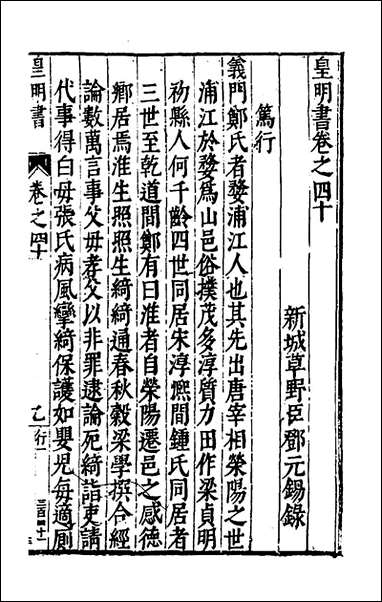 皇明書卷之四十
新城草野臣鄧元錫錄
篤行
義門鄭氏者婺浦江人也其先出唐宰相滎陽之世
浦江於婺爲山邑俗撲茂多淳質力田作梁貞明
初縣人何千齡四世同居宋淳熈間鍾氏同居者
三世至乾道間鄭有曰淮者自榮陽遷邑之感德
鄉居焉淮生照照生綺綺通春秋穀梁學撰合經
論數萬言事父毋孝父以非罪逮論死綺詣吏請
代事得白毋張氏病風攣綺保護如嬰児每適厠
皇明書
卷之四十